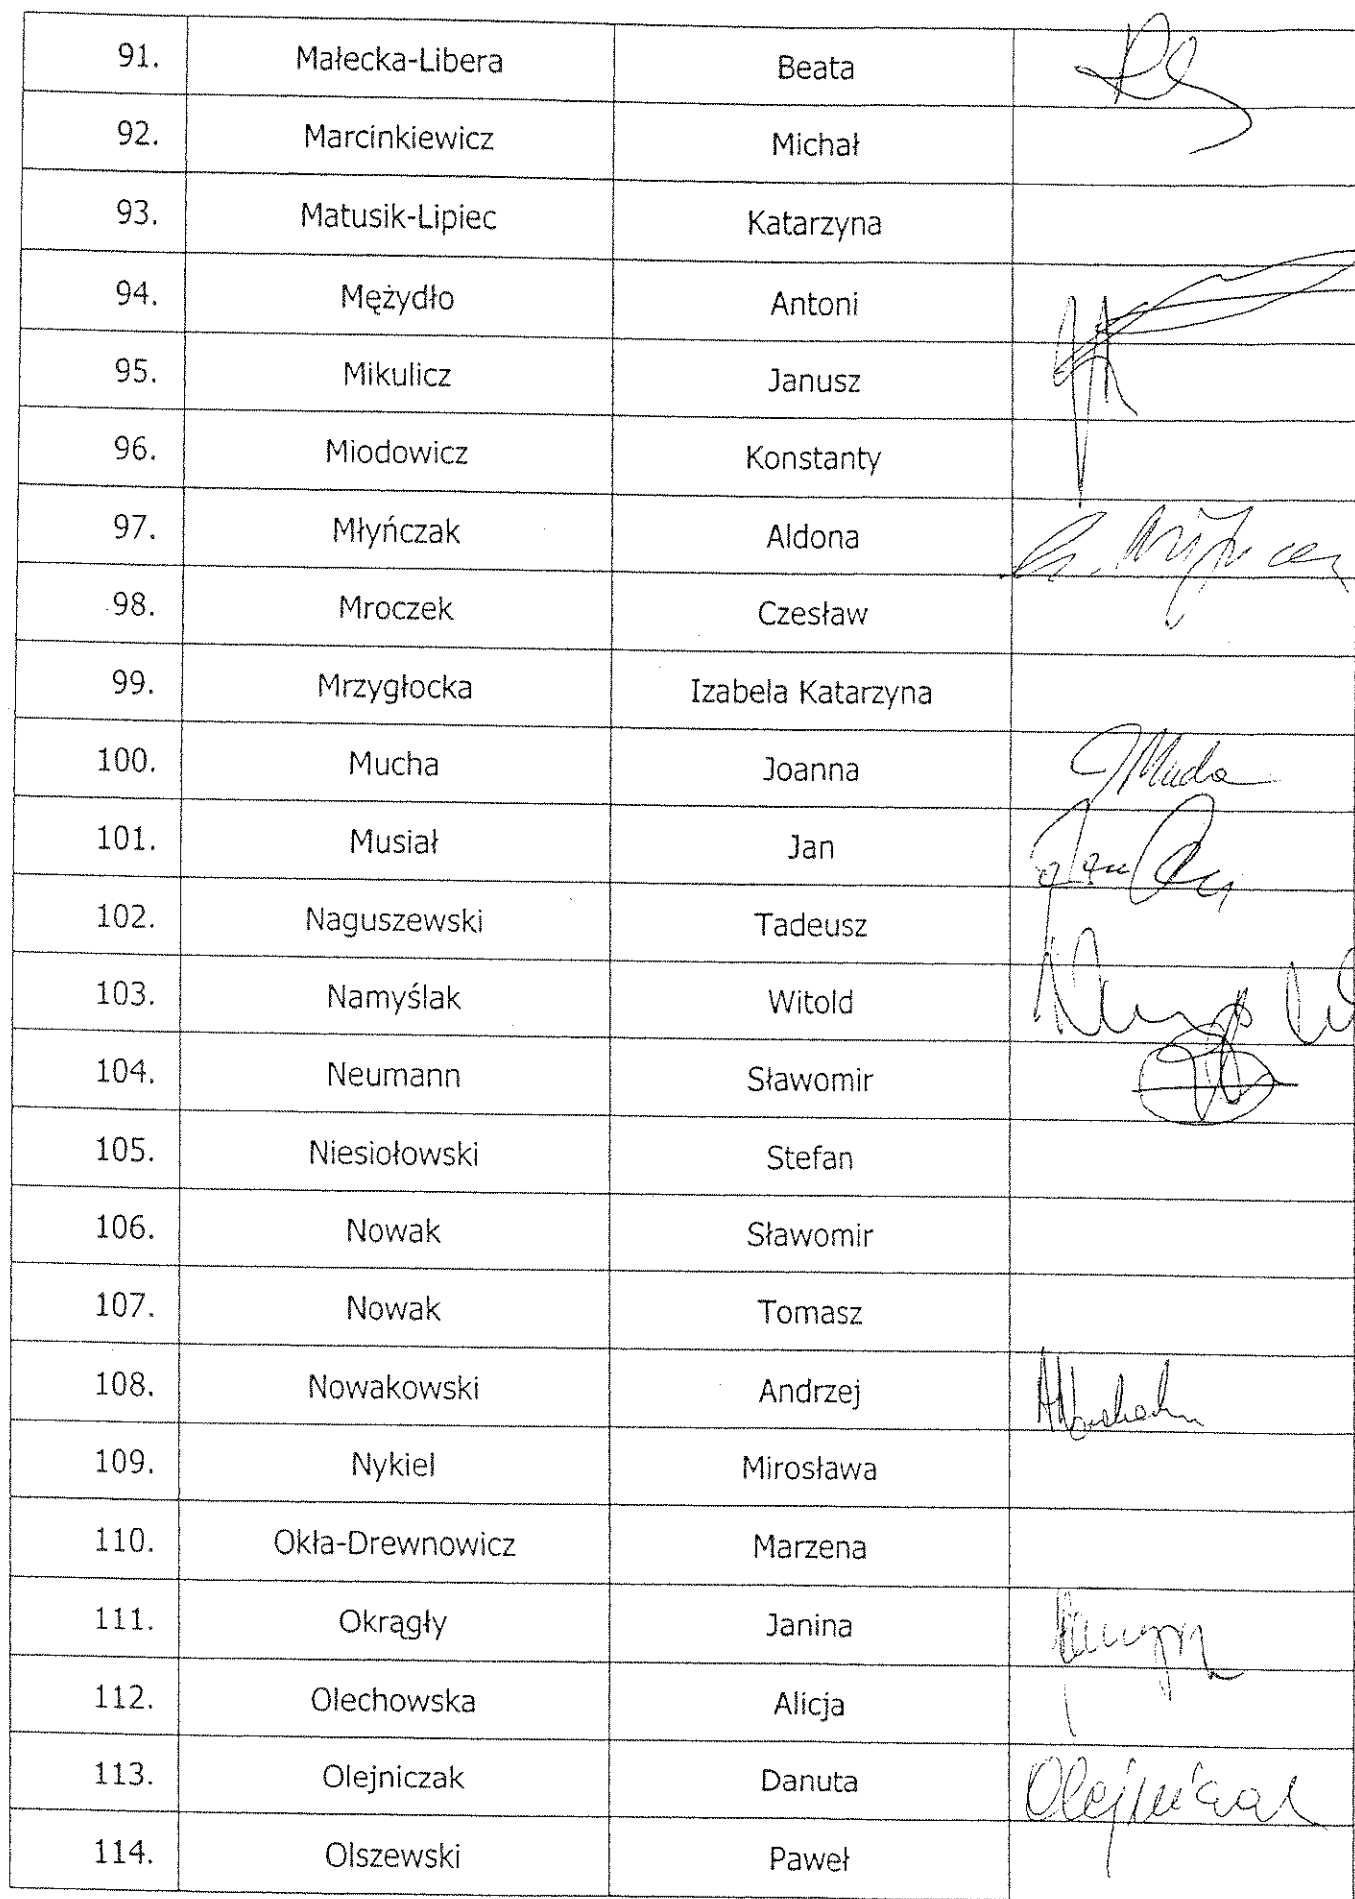 91. Małecka-Libera Beata
92. Marcinkiewicz Michał
93. Matusik-Lipiec Katarzyna
94. Mężydło Antoni
95. Mikulicz Janusz
96. Miodowicz Konstanty
97. Młyńczak Aldona
98. Mroczek Czesław
99. Mrzygłocka Izabela Katarzyna
100. Mucha Joanna
101. Musiał Jan
102. Naguszewski Tadeusz
103. Namyślak Witold
104. Neumann Sławomir
105. Niesiołowski Stefan
106. Nowak Sławomir
107. Nowak Tomasz
108. Nowakowski Andrzej
109. Nykiel Mirosława
110. Okła-Drewnowicz Marzena
111. Okrągły Janina
112. Olechowska Alicja
113. Olejniczak Danuta Olejniczak
114. Olszewski Paweł